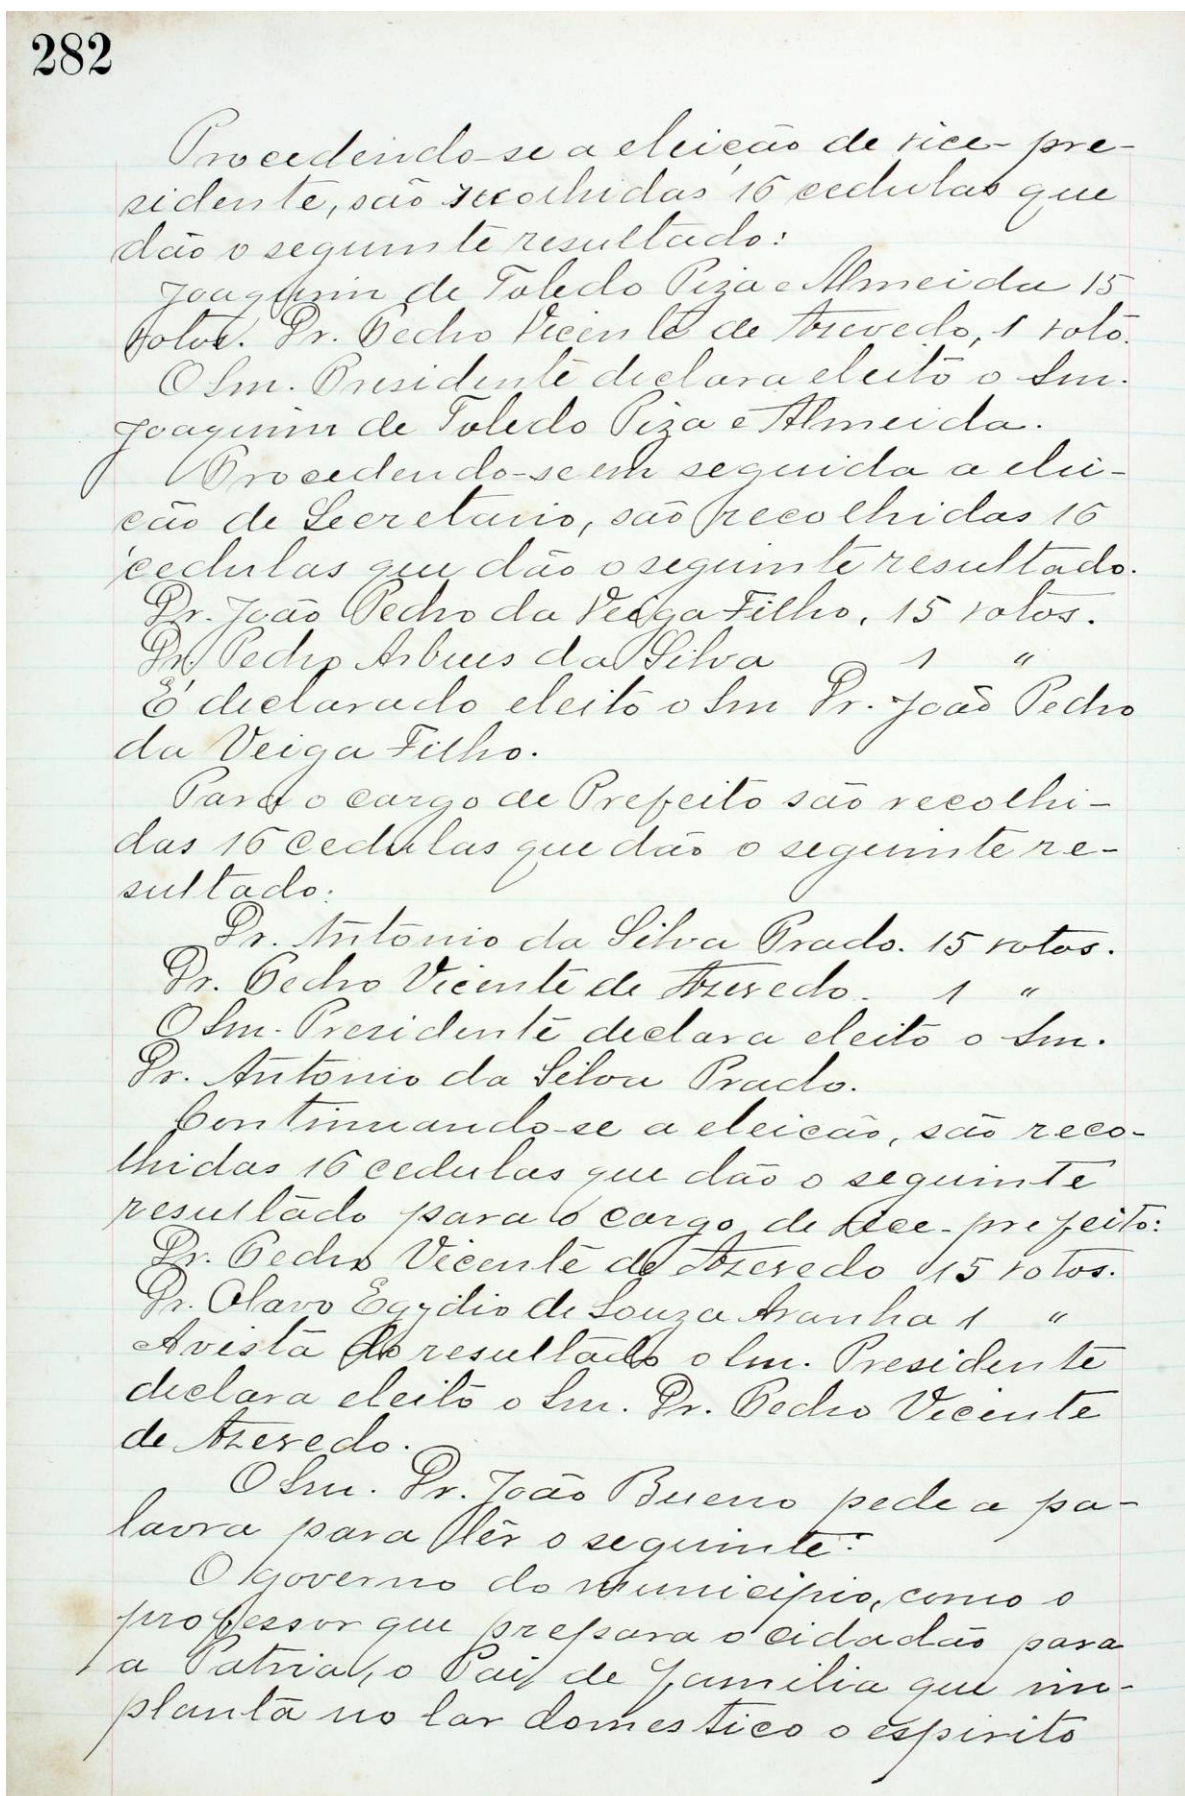 282
Procedendo-se a eleição de vice-pre-
sidente, são recolhidas 16 cedulas que
dão o seguinte resultado:
Joaquim de Toledo Piza e Almeida 15
votos. Dr. Pedro Vicente de Azevedo, 1 voto.
O Snr. Presidente declara eleito o Snr.
Joaquim de Toledo Piza e Almeida.
Procedendo-se em seguida a elei-
ção de Secretario, são recolhidas 16
cedulas que dão o seguinte resultado.
Dr. João Pedro da Veiga Filho, 15 votos.
Dr. Pedro Arbues da Silva 1 "
É declarado eleito o Snr Dr. João Pedro
da Veiga Filho.
Para o cargo de Prefeito são recolhi-
das 16 cedulas que dão o seguinte re-
sultado:
Dr. Antonio da Silva Prado. 15 votos.
Dr. Pedro Vicente de Azevedo. 1 "
O Snr. Presidente declara eleito o Snr.
Dr. Antonio da Silva Prado.
Continuando-se a eleicão, são reco-
lhidas 16 cedulas que dão o seguinte
resultado para o cargo de vice-prefeito:
Dr. Pedro Vicente de Azevedo 15 votos.
Dr. Olavo Egydio de Souza Aranha 1 "
A vista do resultado o Snr. Presidente
declara eleito o Snr. Dr. Pedro Vicente
de Azevedo.
O Snr. Dr. João Bueno pede a pa-
lavra para lêr o seguinte:
O governo do municipio, como o
professor que prepara o cidadão para
a Patria, o Pai de familia que im-
planta no lar domestico o espirito